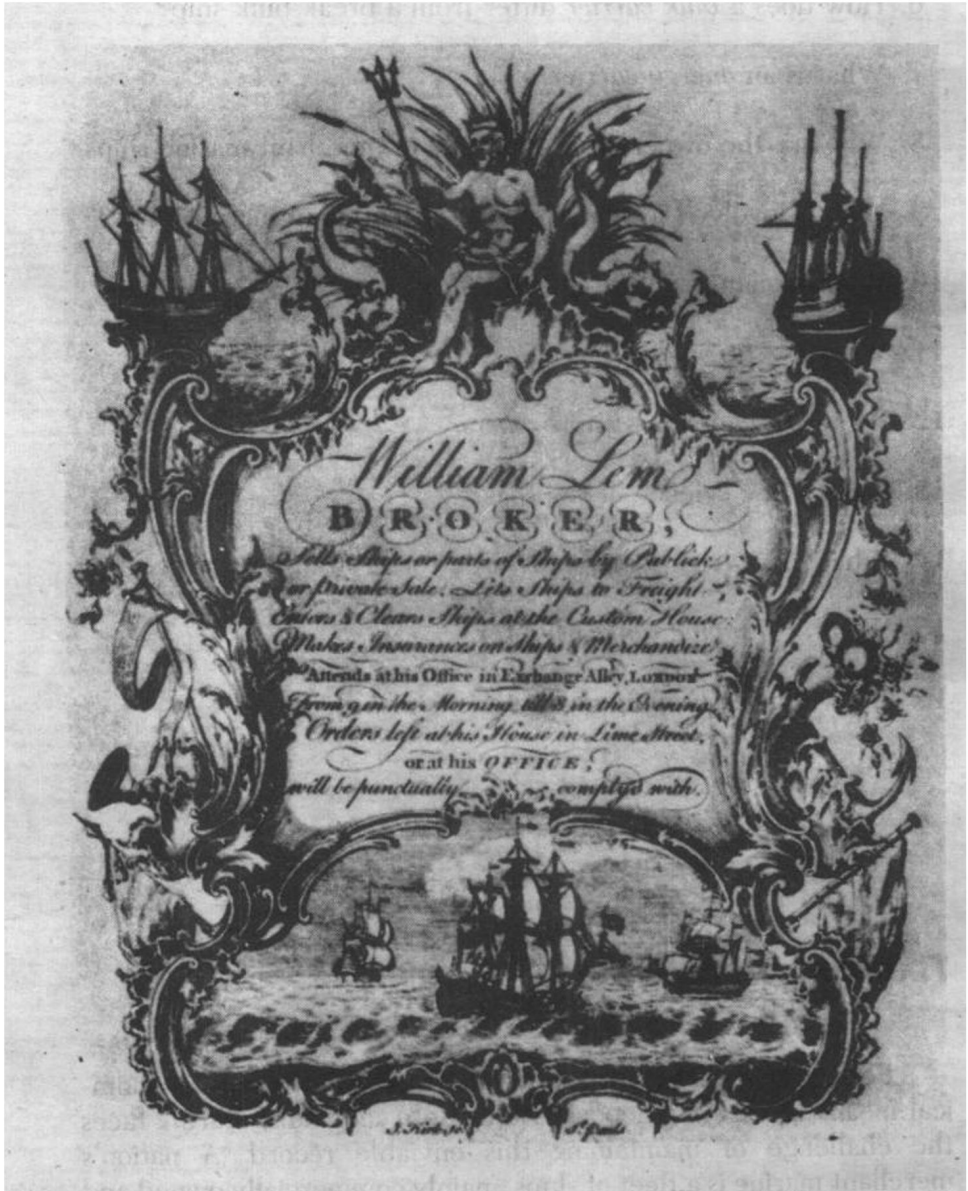 William Lem
BROKER,
Sells Ships or parts of Ships by Publick
or Private Sale, Lets Ships to Freight,
Enters & Clears Ships at the Custom House:
Makes Insurances on Ships & Merchandize.
Attends at his Office in Exchange Alley, LONDON
From 9 in the Morning till 8 in the Evening
Orders left at his House in Lime Street,
or at his OFFICE,
will be punctually comply'd with.
J. Kirk Sc. St. Pauls